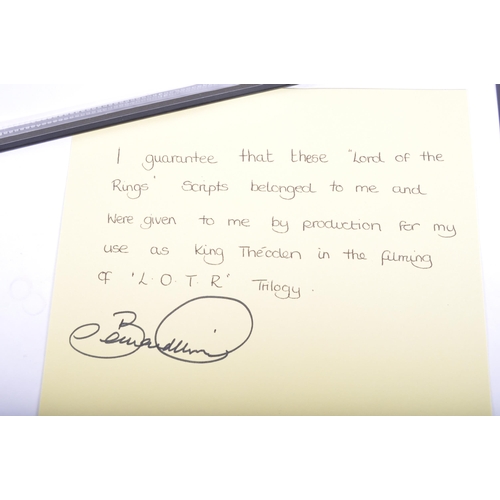 I guarantee that these "Lord of the
Rings' Scripts belonged to me and
were given to me by production for my
use as King Théoden in the filming
of 'L.O.T.R' Trilogy.